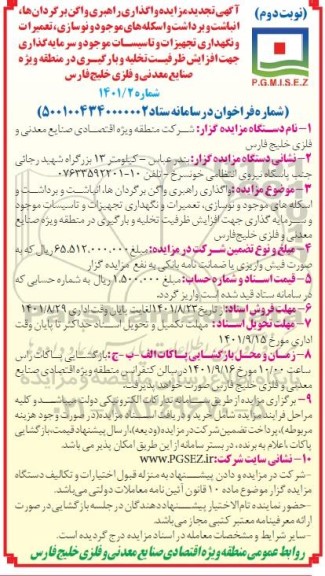 (نوبت دوم)
P.G.M.I.S.E.Z
آگهی تجدید مزایده واگذاری راهبری واگن برگردان‌ها،
انباشت و برداشت و اسکله های موجود و نوسازی، تعمیرات
و نگهداری تجهیزات و تاسیسات موجود و سرمایه گذاری
جهت افزایش ظرفیت تخلیه و بارگیری در منطقه ویژه
صنایع معدنی و فلزی خلیج فارس
شماره ۱۴۰۱/۲
(شماره فراخوان در سامانه ستاد ۵۰۰۱۰۰۴۳۴۰۰۰۰۰۰۲)
۱- نام دستگاه مزایده گزار: شرکت منطقه ویژه اقتصادی صنایع معدنی و
فلزی خلیج فارس
۲- نشانی دستگاه مزایده گزار: بندرعباس - کیلومتر ۱۳ بزرگراه شهید رجائی
جنب پاسگاه نیروی انتظامی خونسرخ - تلفن ۱۰-۰۷۶۳۳۵۹۲۲۰۱
۳- موضوع مزایده: واگذاری راهبری واگن برگردان ها، انباشت و برداشت و
اسکله های موجود و نوسازی، تعمیرات و نگهداری تجهیزات و تاسیسات موجود
و سرمایه گذاری جهت افزایش ظرفیت تخلیه و بارگیری در منطقه ویژه صنایع
معدنی و فلزی خلیج فارس
۴- مبلغ و نوع تضمین شرکت در مزایده: مبلغ ۶۵.۵۱۲.۰۰۰.۰۰۰ ریال که به
صورت فیش واریزی یا ضمانت نامه بانکی به نفع مزایده گزار
۵- قیمت اسناد و شماره حساب: مبلغ ۱.۵۰۰.۰۰۰ ریال به شماره حسابی که
در سامانه ستاد قید شده است واریز گردد.
۶- مهلت فروش اسناد: از تاریخ ۱۴۰۱/۸/۲۳ لغایت پایان وقت اداری ۱۴۰۱/۸/۲۹
۷- مهلت تحویل اسناد: مهلت تکمیل و تحویل اسناد حداکثر تا پایان وقت
اداری مورخ ۱۴۰۱/۹/۱۵
۸- زمان و محل بازگشایی پاکات الف - ب - ج: بازگشایی پاکات راس
ساعت ۱۰/۰۰ مورخ ۱۴۰۱/۹/۱۶ در سالن کنفرانس منطقه ویژه اقتصادی صنایع
معدنی و فلزی خلیج فارس صورت خواهد پذیرفت.
۹- برگزاری مزایده از طریق سامانه تدارکات الکترونیکی دولت می‌باشد و کلیه
مراحل فرایند مزایده شامل خرید و دریافت اسناد مزایده (در صورت وجود هزینه
مربوطه)، پرداخت تضمین شرکت در مزایده (ودیعه)، ارسال پیشنهاد قیمت، بازگشایی
پاکات، اعلام به برنده، در بستر سامانه از این طریق امکان پذیر می باشد.
۱۰- نشانی سایت شرکت: www.PGSEZ.ir
-شرکت در مزایده و دادن پیشنهاد به منزله قبول اختیارات و تکالیف دستگاه
مزایده گزار موضوع ماده ۱۰ قانون آئین نامه معاملات دولتی می‌باشد.
-حضور نماینده تام الاختیار پیشنهاد دهندگان در جلسه بازگشایی در صورت
ارائه معرفینامه معتبر کتبی مجاز می‌باشد.
- سایر شرایط و مشخصات معامله در اسناد مزایده درج گردیده است.
روابط عمومی منطقه ویژه اقتصادی صنایع معدنی و فلزی خلیج فارس